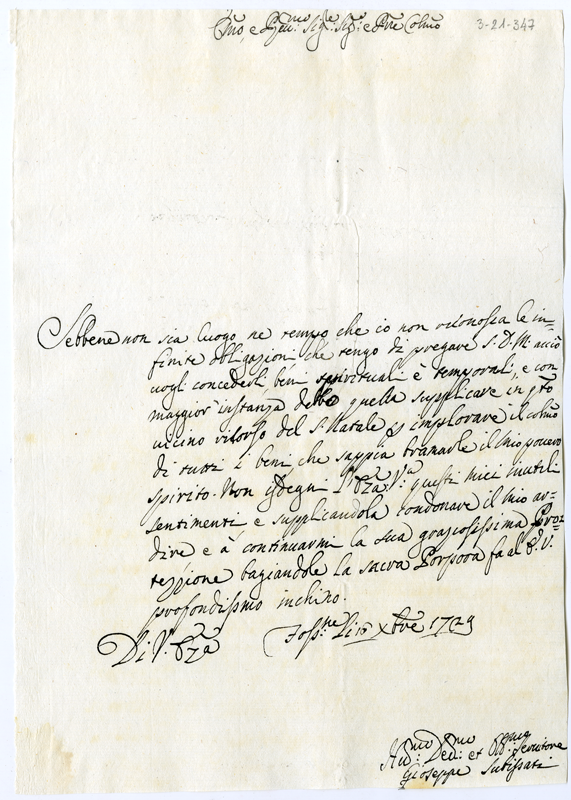 Emo, e Rmo: Sigre Sig: e Pne Colmo
3-21-347
Sebbene non sia luogo ne tempo che io non riconosca le in=
finite obligazioni che tengo di pregare S. D. M. acciò
vogli concederli beni spirituali e temporali, e con
maggior instanza debbo quella supplicare in qto
vicino ricorso del S. Natale ed implorarle il colmo
di tutti i beni che sappia bramarle il mio povero
spirito. Non isdegni l'Eza Va questi miei inutili
sentimenti e supplicandola condonare il mio ar=
dire e à continuarmi la sua graziosissima Pro=
tezzione bagiandole la sacra Porpora fa al E. V.
profondissimo inchino.
Di V. Eza
Fossne li 10 Xbre 1729
Humo Devmo et Obmo Servitore
Gioseppe Subissati